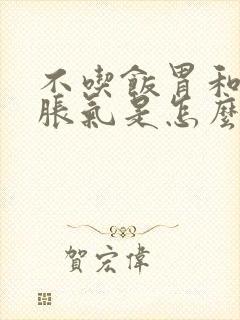 不喫飯胃和
脹氣是怎麼
賀宏偉